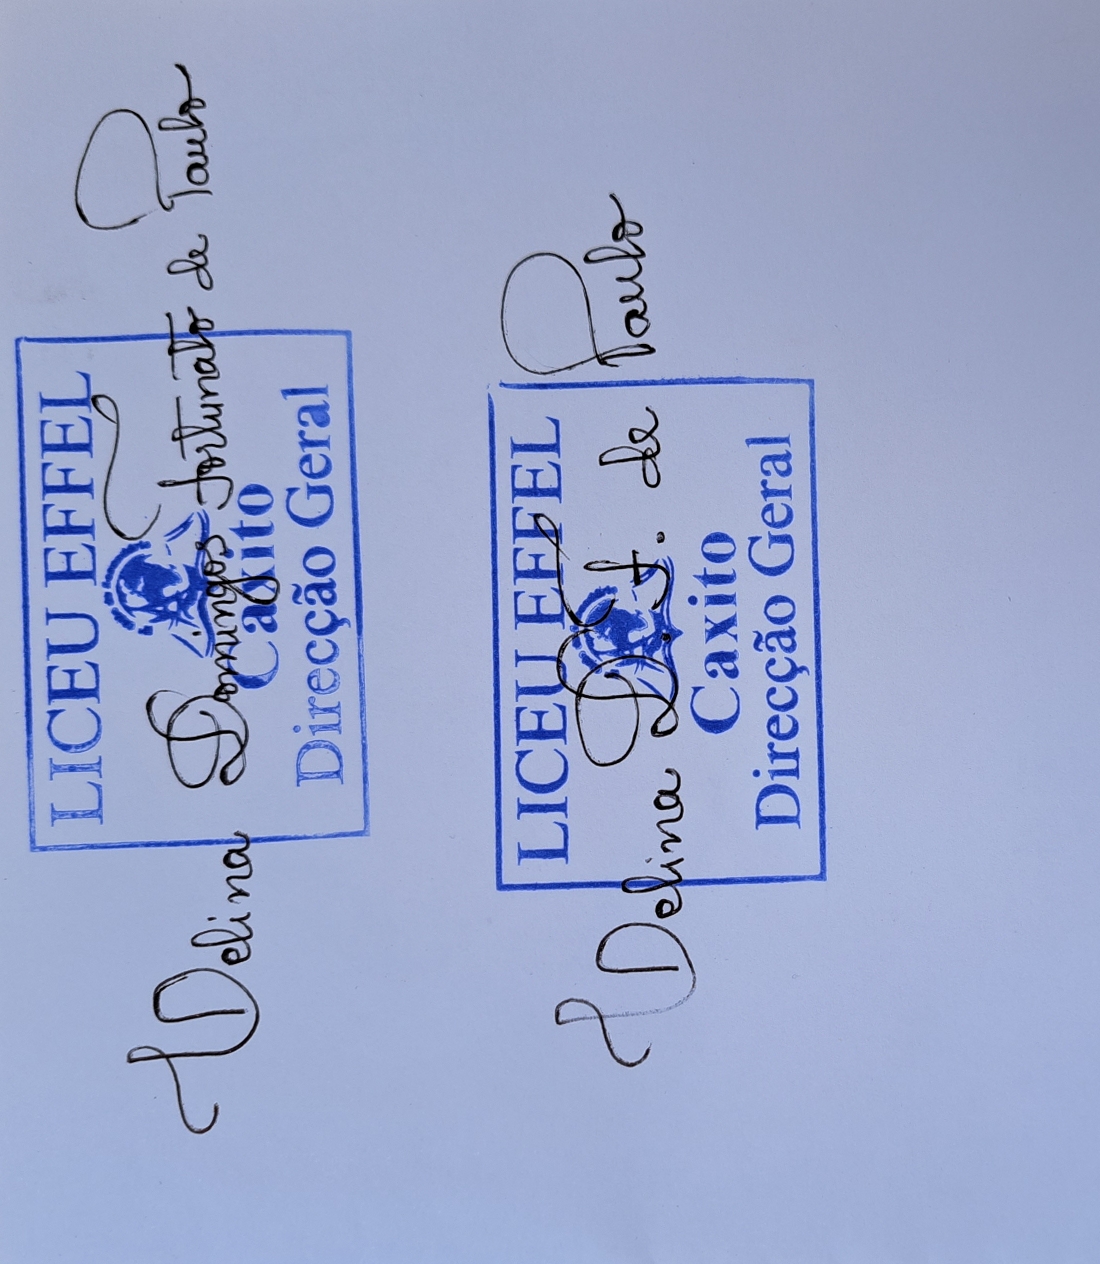 LICEU EFFEL
Velina Domingos Fortunato de Paulo
Caxito
Direcção Geral
LICEU EFFEL
Velina D. F. de Paulo
Caxito
Direcção Geral